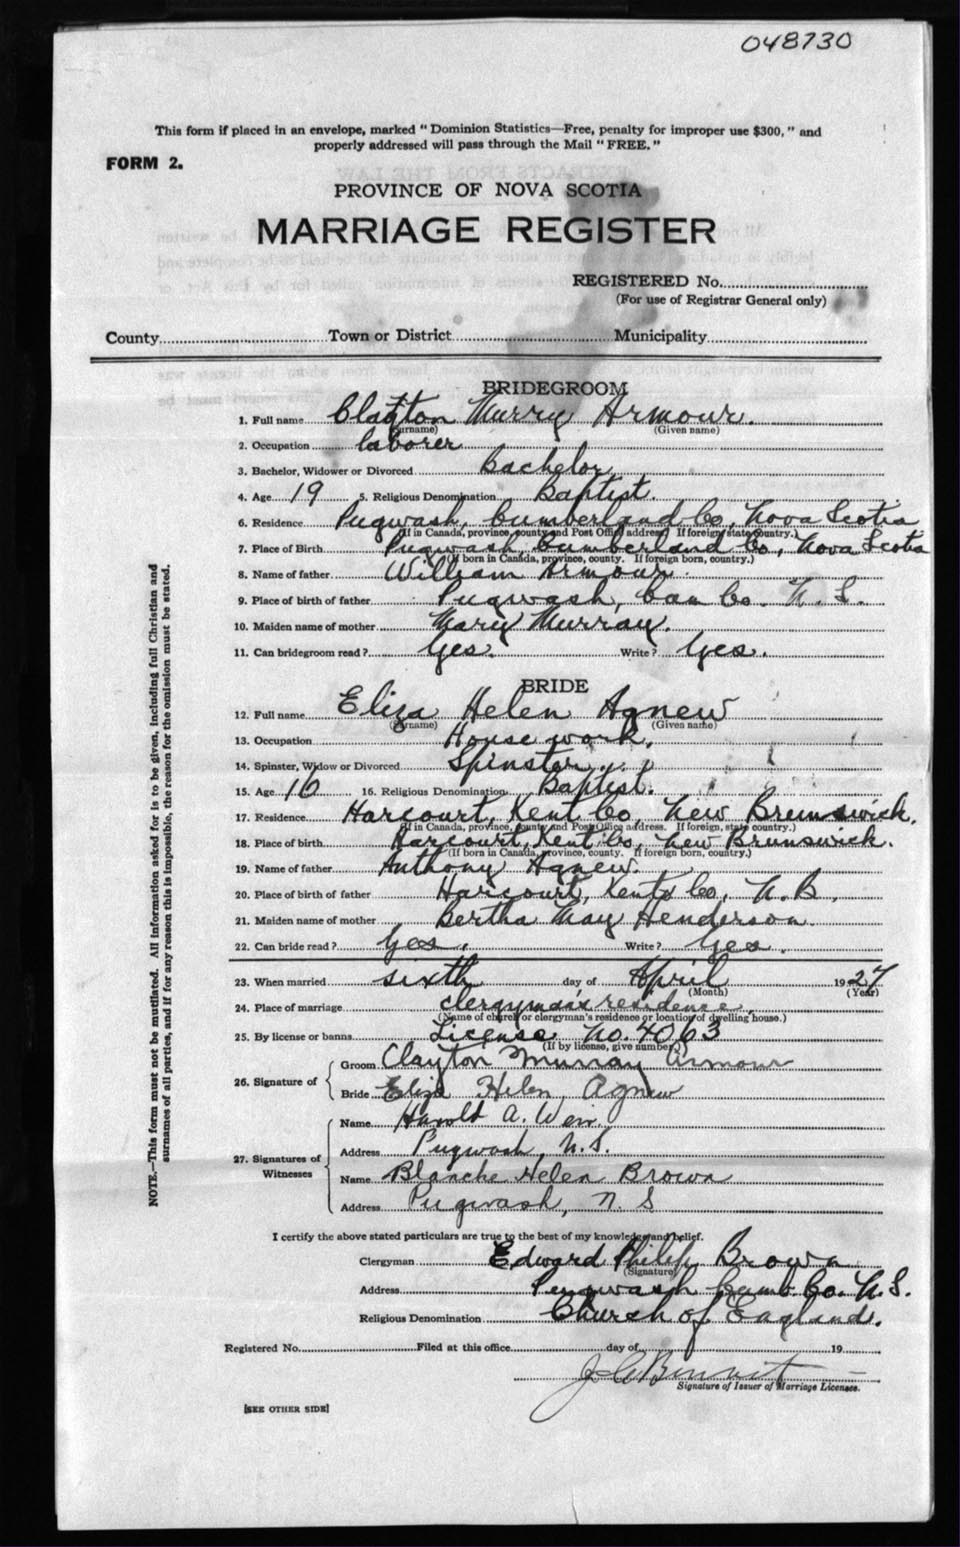 048730
This form if placed in an envelope, marked "Dominion Statistics—Free, penalty for improper use $300," and
properly addressed will pass through the Mail "FREE."
FORM 2.
PROVINCE OF NOVA SCOTIA
MARRIAGE REGISTER
REGISTERED No.
(For use of Registrar General only)
County Town or District Municipality
BRIDEGROOM
1. Full name Clayton Murry Armour.
(Surname) (Given name)
2. Occupation laborer
3. Bachelor, Widower or Divorced Bachelor
4. Age 19 5. Religious Denomination Baptist.
6. Residence Pugwash, Cumberland Co, Nova Scotia
(If in Canada, province, county and Post Office address. If foreign, state country.)
7. Place of Birth Pugwash, Cumberland Co, Nova Scotia
(If born in Canada, province, county. If foreign born, country.)
8. Name of father William Armour.
9. Place of birth of father Pugwash, Cum Co. N. S.
10. Maiden name of mother Mary Murray.
11. Can bridegroom read? Yes. Write? Yes.
BRIDE
12. Full name Eliza Helen Agnew
(Surname) (Given name)
13. Occupation House work.
14. Spinster, Widow or Divorced Spinster
15. Age 16 16. Religious Denomination Baptist.
17. Residence Harcourt, Kent Co, New Brunswick.
(If in Canada, province, county and Post Office address. If foreign, state country.)
18. Place of birth Harcourt, Kent Co, New Brunswick.
(If born in Canada, province, county. If foreign born, country.)
19. Name of father Anthony Agnew.
20. Place of birth of father Harcourt, Kent Co, N. B.
21. Maiden name of mother Bertha May Henderson
22. Can bride read? Yes. Write? Yes.
23. When married sixth day of April 1927
(Month) (Year)
24. Place of marriage clergyman's residence
(Name of church or clergyman's residence or location of dwelling house.)
25. By license or banns License No. 4063
(If by license, give number.)
26. Signature of
Groom Clayton Murray Armour
Bride Eliza Helen Agnew
27. Signatures of Witnesses
Name Harold A. Weir.
Address Pugwash, N.S.
Name Blanche Helen Brown
Address Pugwash, N. S
I certify the above stated particulars are true to the best of my knowledge and belief.
Clergyman Edward Philip Brown
(Signature)
Address Pugwash Cumb. Co. N.S.
Religious Denomination Church of England.
Registered No. Filed at this office day of 19
Bennet
Signature of Issuer of Marriage Licenses.
[SEE OTHER SIDE]
NOTE.—This form must not be mutilated. All information asked for is to be given, including full Christian and
surnames of all parties, and if for any reason this is impossible, the reason for the omission must be stated.